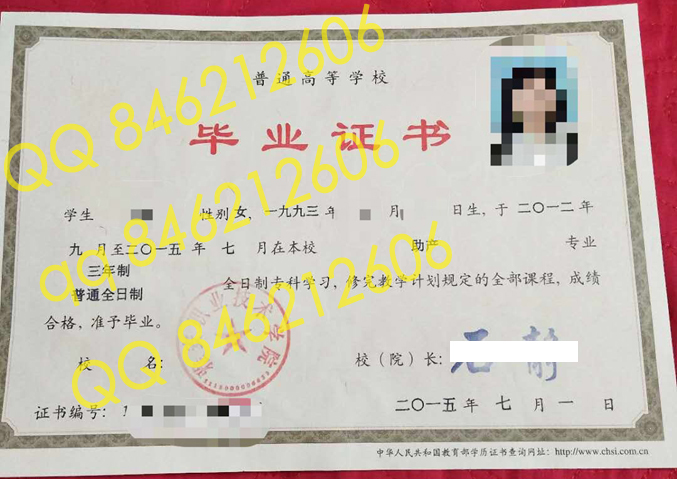 普通高等学校
毕业证书
学生 性别 女，一九九三 年 月 日生，于 二〇一二年
九 月至二〇一五 年 七 月在本校 助产 专业
三年制
普通全日制
全日制专科学习，修完教学计划规定的全部课程，成绩
合格，准予毕业。
校 名：
校（院）长：
石静
证书编号：1
二〇一五年 七 月 一 日
中华人民共和国教育部学历证书查询网址：http://www.chsi.com.cn
职业技术学院
QQ 846212606
qq 846212606
QQ 846212606